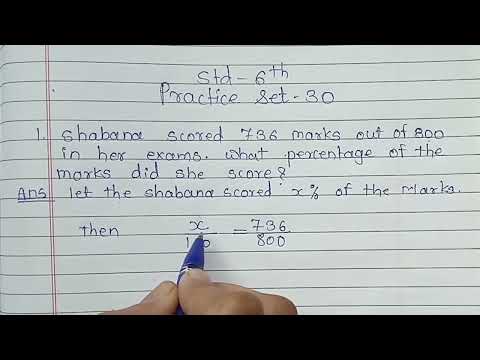 Std - 6th
Practice Set - 30
1. Shabana scored 736 marks out of 800
in her exams. What percentage of the
marks did she score?
Ans let the shabana scored x% of the Marks.
Then x/100 = 736/800